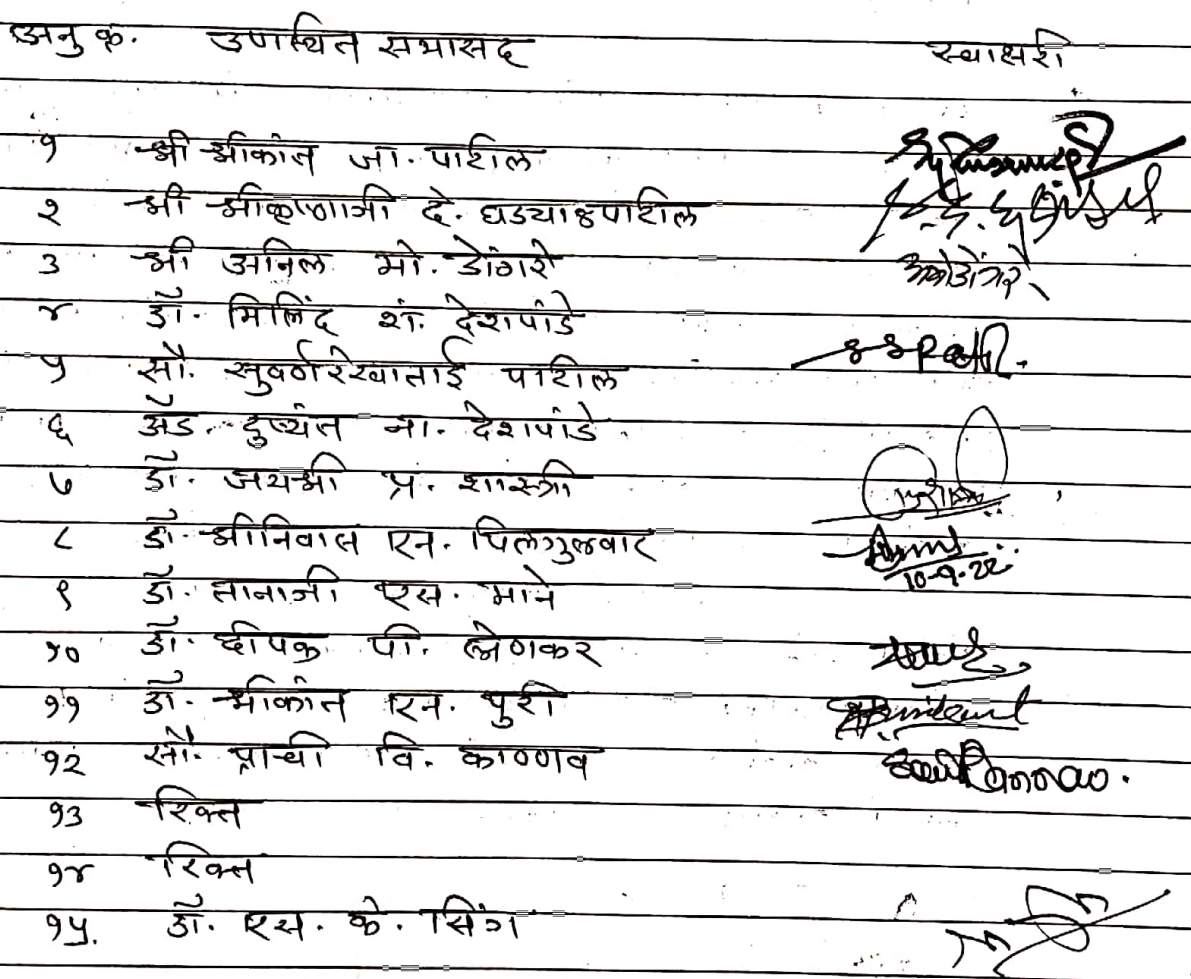 अनु क्र. उपस्थित सभासद स्वाक्षरी
१ श्री श्रीकांत जा. पाटील
२ श्री श्रीकृष्णाजी दे. घड्याळपाटील
३ श्री अनिल मो. डोंगरे
४ डॉ. मिलिंद शं. देशपांडे
५ सौ. सुवर्णरेखाताई पाटील S S Patil.
६ ॲड. दुष्यंत ना. देशपांडे.
७ डॉ. जयश्री प्र. शास्त्री
८ डॉ. श्रीनिवास एन. पिलगुलवार 10-9-22
९ डॉ. तानाजी एस. माने
१० डॉ. दीपक पी.
११ डॉ. श्रीकांत एन. पुरी
१२ सौ. प्राची वि. काण्णव
१३ रिक्त
१४ रिक्त
१५. डॉ. एस. के. सिंग